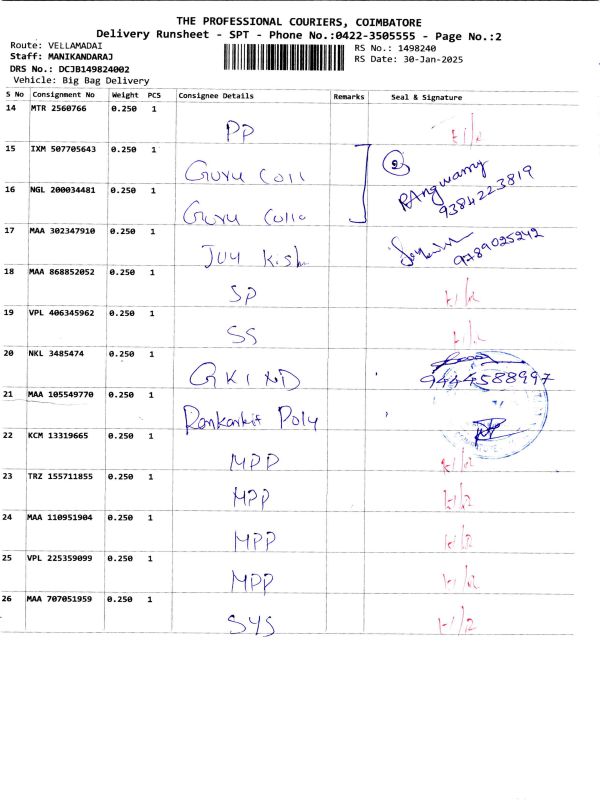 THE PROFESSIONAL COURIERS, COIMBATORE
Delivery Runsheet - SPT - Phone No.:0422-3505555 - Page No.:2
Route: VELLAMADAI
RS No.: 1498240
Staff: MANIKANDARAJ
RS Date: 30-Jan-2025
DRS No.: DCJB149824002
Vehicle: Big Bag Delivery
S No Consignment No Weight PCS Consignee Details Remarks Seal & Signature
14 MTR 2560766 0.250 1
PP
15 IXM 507705643 0.250 1
Guru Coll
2
16 NGL 200034481 0.250 1
Guru Colle
9384223819
17 MAA 302347910 0.250 1
9789025242
18 MAA 868852052 0.250 1
SP
19 VPL 406345962 0.250 1
SS
20 NKL 3485474 0.250 1
GKIND
9444588997
21 MAA 105549770 0.250 1
Poly
22 KCM 13319665 0.250 1
MPP
23 TRZ 155711855 0.250 1
MPP
24 MAA 110951904 0.250 1
MPP
25 VPL 225359099 0.250 1
MPP
26 MAA 707051959 0.250 1
SYS